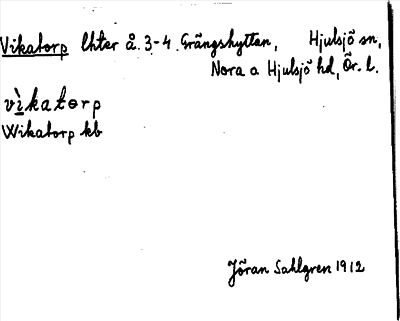 Vikatorp lhter å. 3-4. Grängshyttan, Hjulsjö sn,
Nora o Hjulsjö hd, Ör. l.
vìkatɵrp
Wikatorp kb
Jöran Sahlgren 1912